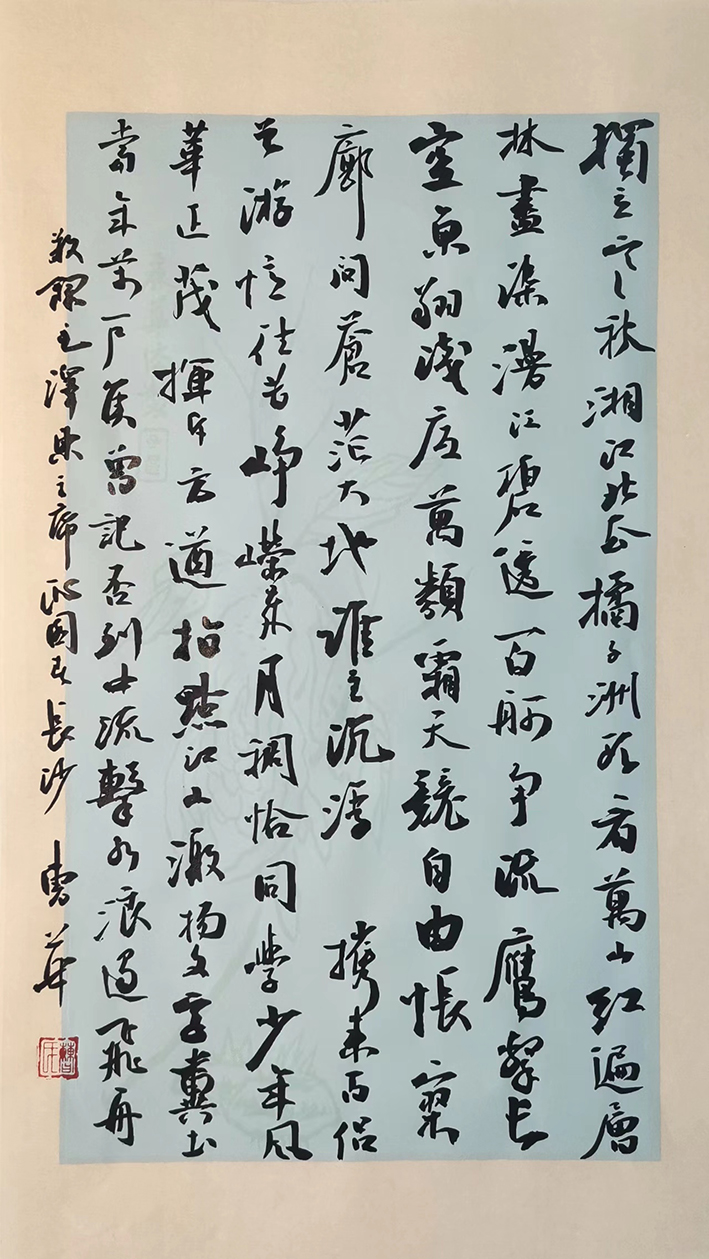 獨立寒秋湘江北去橘子洲头看萬山红遍層
林盡染漫江碧透百舸争流鷹擊长
空鱼翔淺底萬類霜天競自由悵寥
廓问蒼茫大地谁主沉浮 携来百侣
曾游憶往昔峥嶸岁月稠恰同學少年风
華正茂揮斥方遒指點江山激扬文字糞土
當年万户侯曾記否到中流擊水浪遏飛舟
敬録毛澤東主席沁園春長沙 曹華